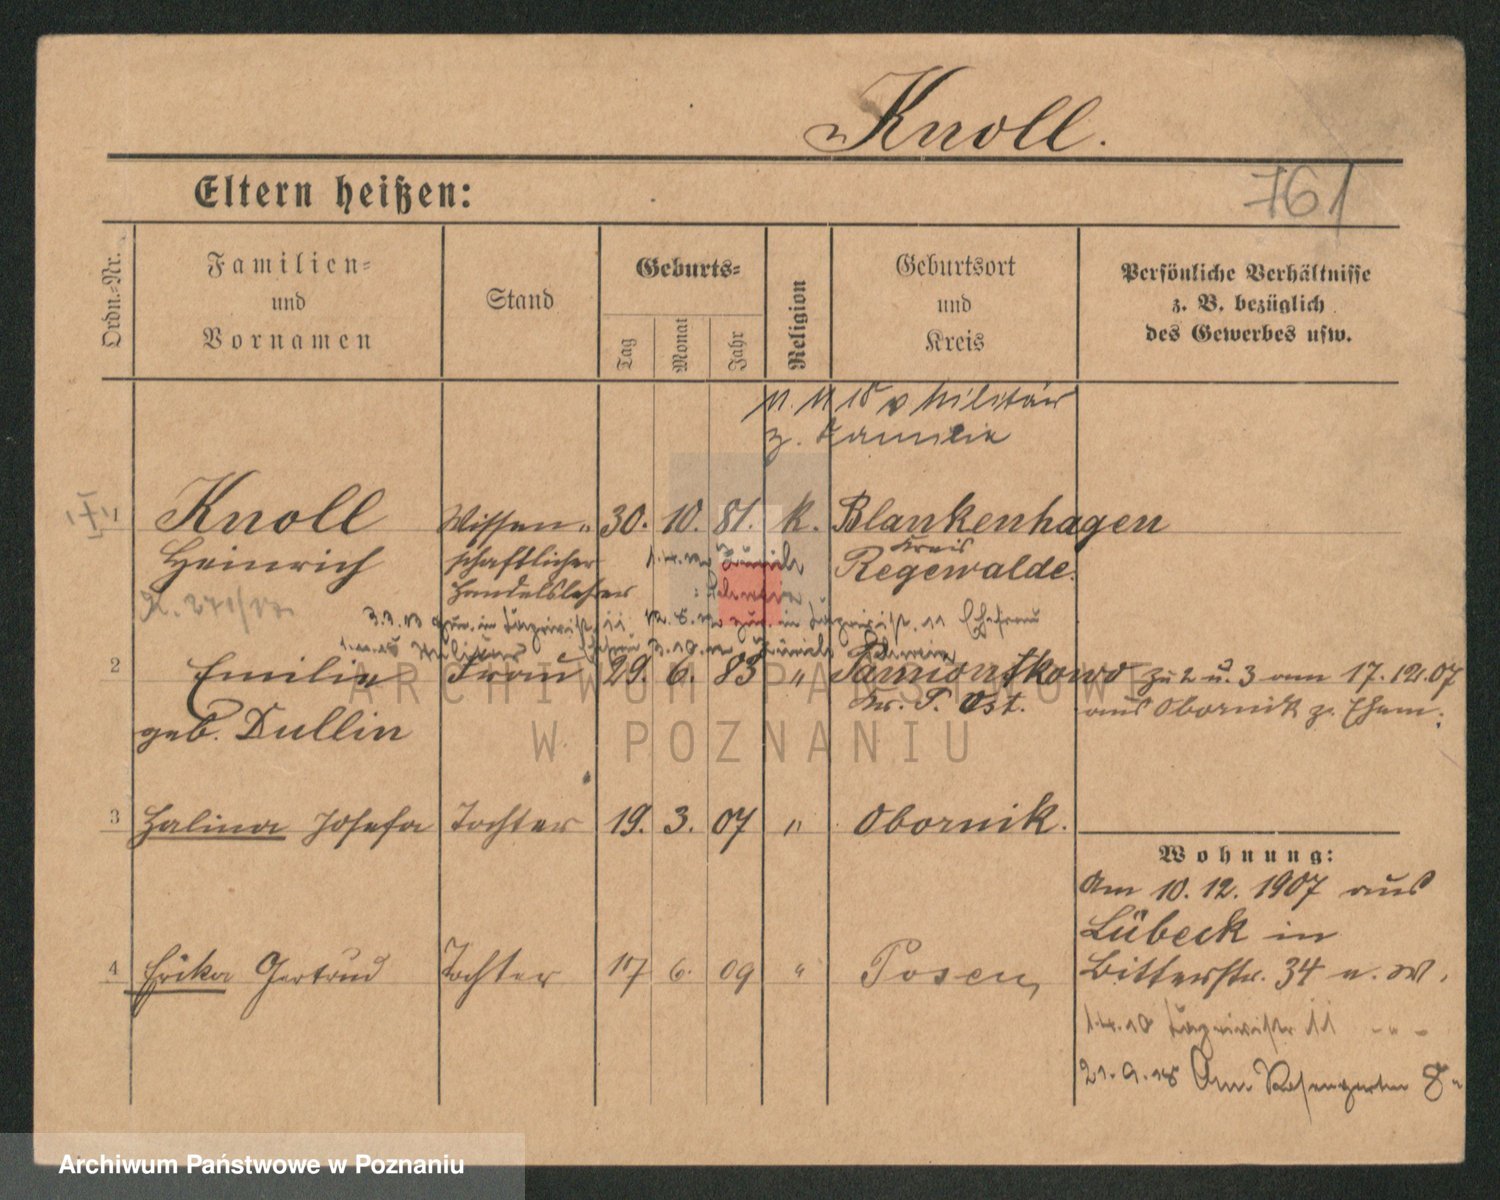 Knoll.
Eltern heißen:
761
Ordn.-Nr.
Familien-
und
Vornamen
Stand
Geburts-
Tag
Monat
Jahr
Religion
Geburtsort
und
Kreis
Persönliche Verhältnisse
z. B. bezüglich
des Gewerbes usw.
Militär
z. Familie
1 Knoll Wissen- 30. 10. 81. k. Blankenhagen
Heinrich schaftlicher Zürich Kreis Regewalde.
Handelslehrer Schweiz
Ehefrau
Zürich Schweiz
2 Emilie Frau 29. 6. 83 " Pamiontkowo zu 2 u. 3 am 17.12.07
geb. Dullin Kr. P. Ost. aus Obornik z. Ehem.
3 Halina Josefa Tochter 19. 3. 07 " Obornik.
Wohnung:
Am 10. 12. 1907 aus
Lübeck in
4 Erika Gertrud Tochter 17 6. 09 " Posen, Bitterstr. 34 n. W.
1.4.10 11
21.9.18 Am Rosengarten 8
ARCHIWUM PAŃSTWOWE
W POZNANIU
Archiwum Państwowe w Poznaniu